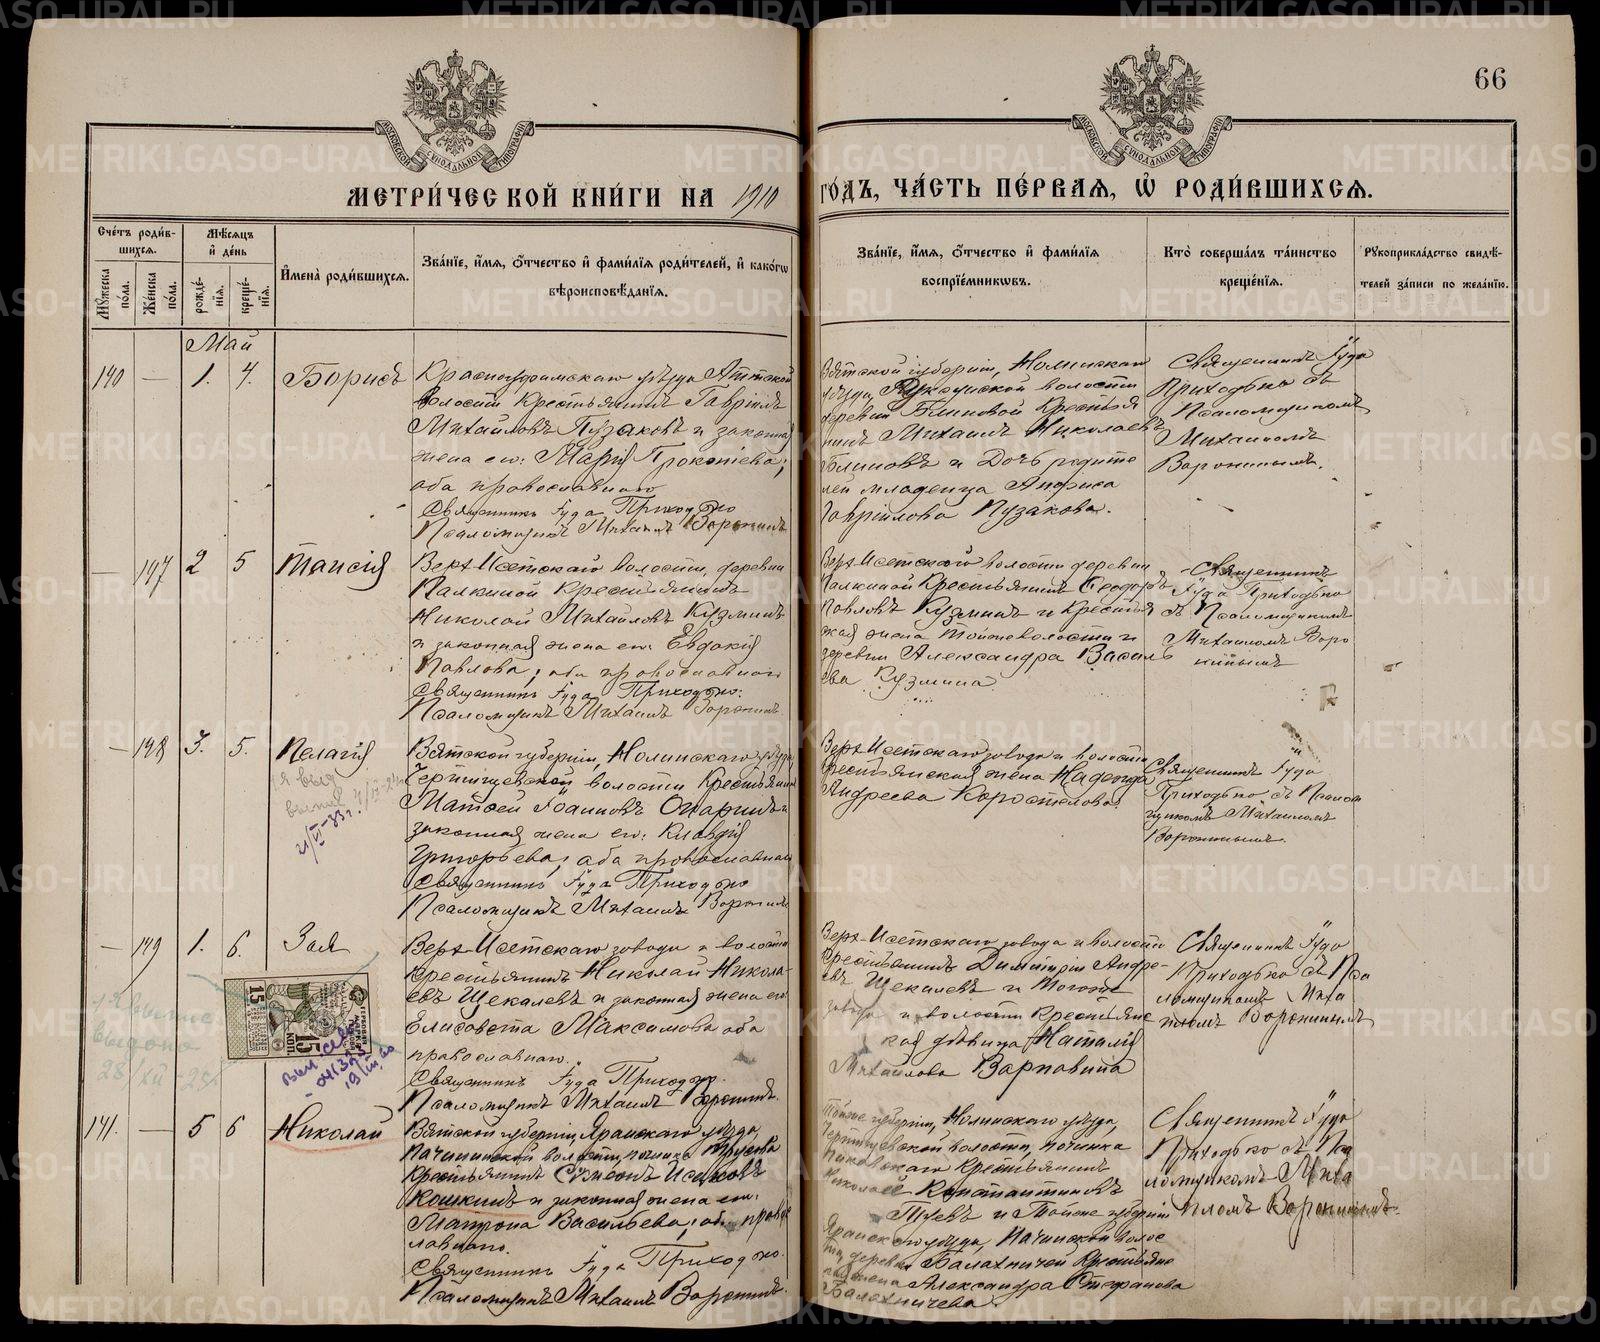 66
МЕТРИЧЕСКОЙ КНИГИ НА 1910 ГОДЪ, ЧАСТЬ ПЕРВАЯ, Ѡ РОДИВШИХСЯ.
Счетъ родив-
шихся.
Мужеска пола.
Женска пола.
Мѣсяцъ
и день
рожде-
нія.
креще-
нія.
Имена родившихся.
Званіе, имя, отчество и фамилія родителей, и какогѡ
вѣроисповѣданія.
Званіе, имя, отчество и фамилія
воспріемниковъ.
Кто совершалъ таинство
крещенія.
Рукоприкладство свидѣ-
телей записи по желанію.
Май
140 — 1. 4. Борисъ
Красноуфимскаго уѣзда Ачитской
волости Крестьянинъ Гавріилъ
Михайловъ Пузаковъ и законная
жена его: Марія Прокопіева;
оба православнаго
Священникъ Іуда Приходько
Псаломщикъ Михаилъ Воронинъ
Вятской губерніи, Нолинскаго
уѣзда волости
деревни Блиновой Крестья
нинъ Михаилъ Николаевъ
Блиновъ и Дочь родите
лей младенца Анфиса
Гавріилова Пузакова.
Священникъ Іуда
Приходько съ
Псаломщикомъ
Михаиломъ
Воронинымъ.
— 147 2 5 Таисія
Верх-Исетской волости, деревни
Палкиной Крестьянинъ
Николай Михайловъ Кузминъ
и законная жена его: Евдокія
Павлова; оба православнаго
Священникъ Іуда Приходько.
Псаломщикъ Михаилъ Воронинъ.
Верх-Исетской волости деревни
Палкиной Крестьянинъ Ѳеодоръ
Павловъ Кузминъ и Крестьян
ская жена тойже волости и
деревни Александра Василь
ева Кузмина
Священникъ
Іуда Приходько
съ Псаломщикомъ
Михаиломъ Воро
нинымъ
— 148 3. 5. Пелагія
21/VI-33г.
Вятской губерніи, Нолинскаго уѣзда,
волости Крестьянинъ
Матѳей Іоанновъ Опаринъ и
законная жена его: Клавдія
Григорьева, оба православнаго
Священникъ Іуда Приходько
Псаломщикъ Михаилъ Воронинъ
Верх-Исетскаго завода и волости
Крестьянская жена Надежда
Андреева Коростелова.
Священникъ Іуда
Приходько съ Псалом
щикомъ Михаиломъ
Воронинымъ
— 149 1. 6. Зоя
Верх-Исетскаго завода и волости
Крестьянинъ Николай Никола-
евъ Щекалевъ и законная жена его
Елисавета Максимова оба
православнаго.
Священникъ Іуда Приходько.
Псаломщикъ Михаилъ Воронинъ.
15
15
КОП.
выдана
28/XII-25г.
Верх-Исетскаго завода и волости
Крестьянинъ Димитрій Андре-
евъ Щекалевъ и тогоже
завода и волости Крестьянс
кая дѣвица Наталія
Михайлова Варповина
Священникъ Іуда
Приходько съ Пса
ломщикомъ Миха
иломъ Воронинымъ
141. — 5 6 Николай
Вятской губерніи, Яранскаго уѣзда,
волости, починка
Крестьянинъ Сѵмеонъ Исаковъ
Кошкинъ и законная жена его:
Матрона Васильева; оба правос
лавнаго.
Священникъ Іуда Приходько.
Псаломщикъ Михаилъ Воронинъ.
Тойже губерніи, Нолинскаго уѣзда,
волости, починка
Крестьянинъ
Николай Константиновъ
и Тойже губерніи
Яранскаго уѣзда, волос
ти, деревни Крестьянс
кая жена Александра Стефанова
Священникъ Іуда
Приходько съ Пса
ломщикомъ Миха
иломъ Воронинымъ.
METRIKI.GASO-URAL.RU